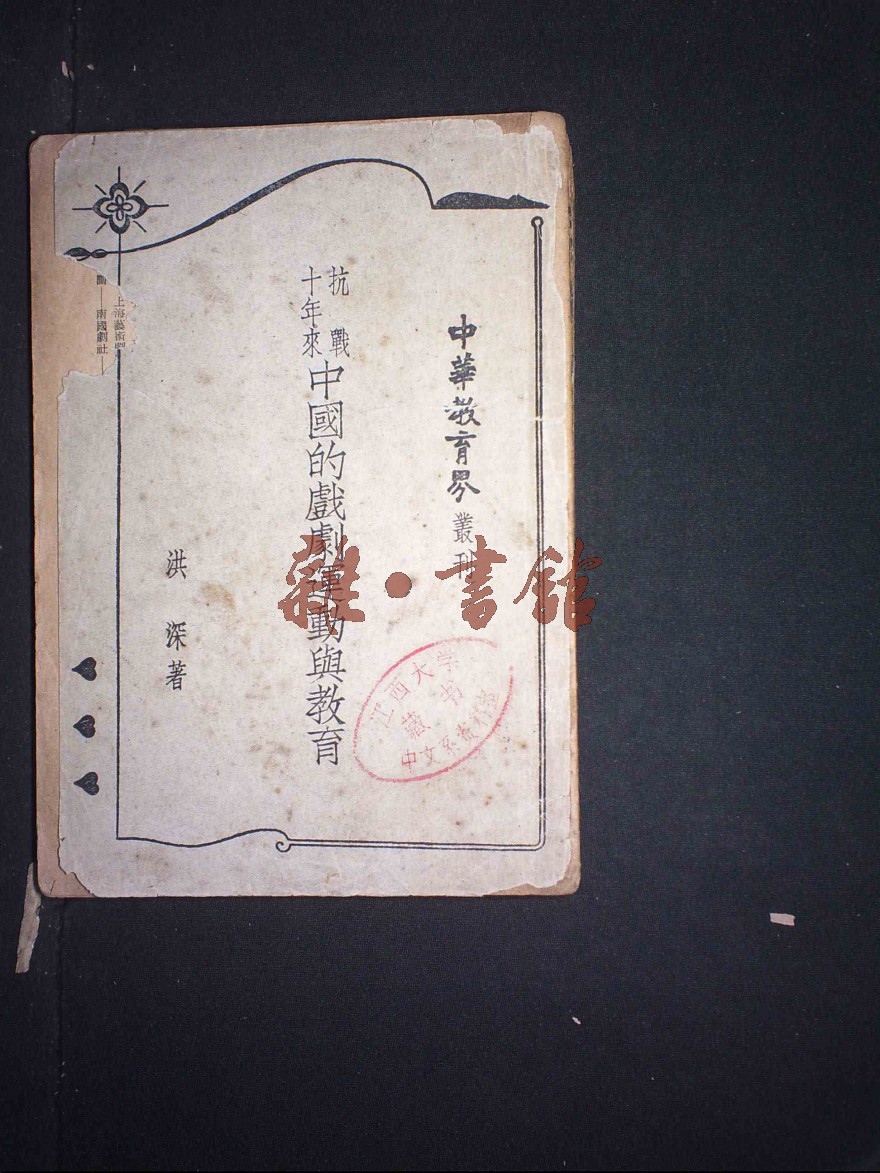 中華教育界叢刊
抗戰
十年來
中國的戲劇運動與教育
洪深著
上海藝術
南國劇社
江西大学
藏书
中文系資料室
雜·書館